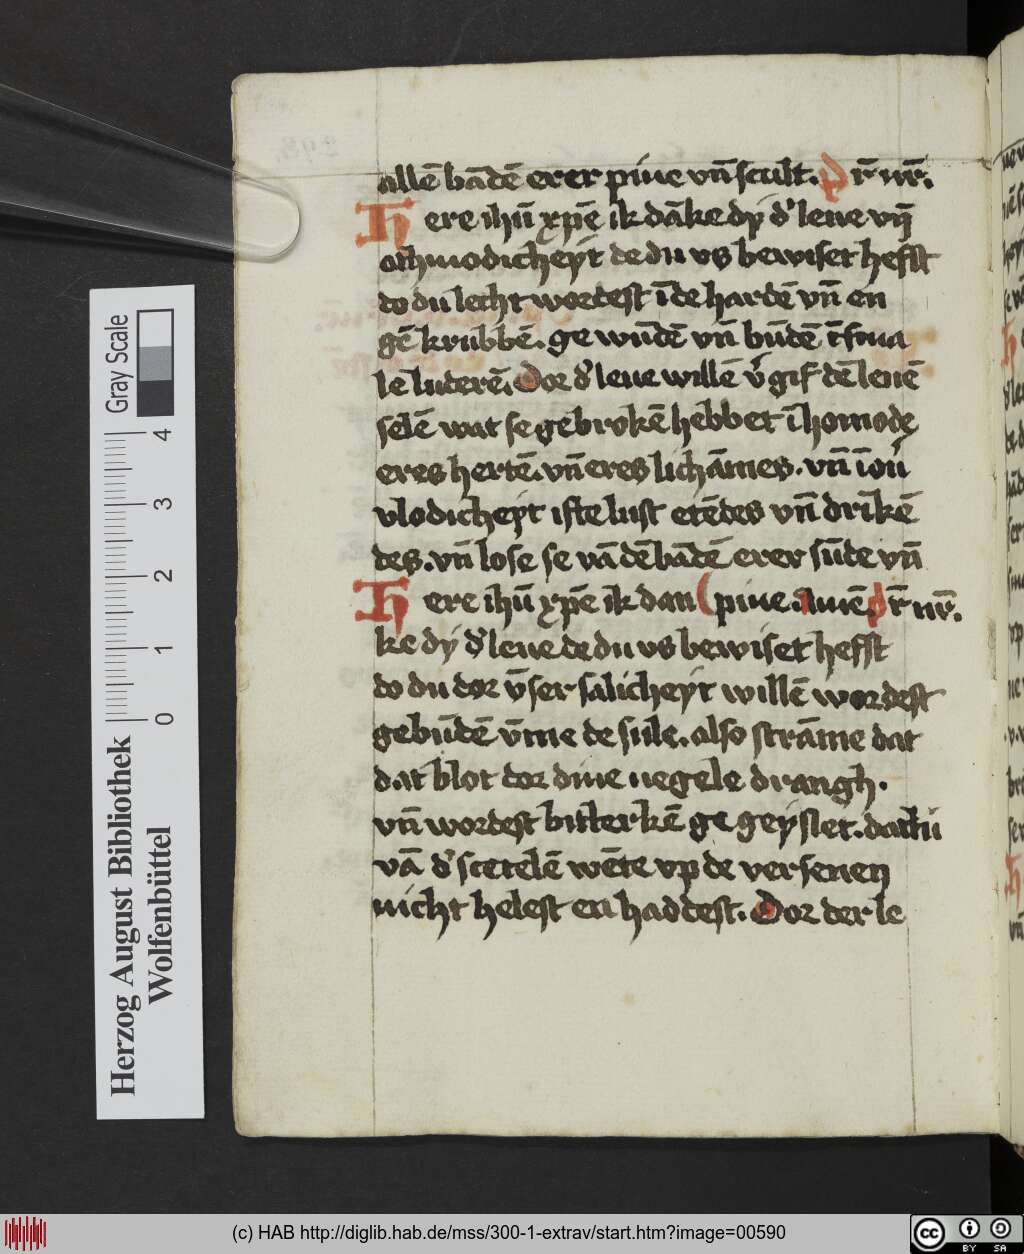 allē bādē erer pine vn̄ scult. Pr̄ nr̄.
Here ihū xp̄e ik dāke dy d' leue vn̄
othmodicheyt de du vs bewiset hefst
do du lecht wordest ī de hardē vn̄ en
gē krubbē. ge wūdē vn̄ būdē
le luderē. Dor d' leue willē v'gif dē lenē
selē wat se gebrokē hebbet ī homode
eres hertē. vn̄ eres lichāmes. vn̄
vlodicheyt ifte lust etēdes vn̄ drīkē
des. vn̄ lose se vā dē bādē erer sūde vn̄
Here ihū xp̄e ik dan (pine. Amē. Pr̄ nr̄.
ke dy d' leue de du vs bewiset hefst
do du dor v̄ser salicheyt willē wordest
gebūdē v̄me de sule. also strāme dat
dat blot dor dine negele drangh.
vn̄ wordest bitterkē ge geyslet. dattu
vā d' scetelē wēte vp de versenen
nicht helest en haddest. Dor der le
Gray Scale
4 3 2 1 0
Herzog August Bibliothek
Wolfenbüttel
(c) HAB http://diglib.hab.de/mss/300-1-extrav/start.htm?image=00590
cc BY SA